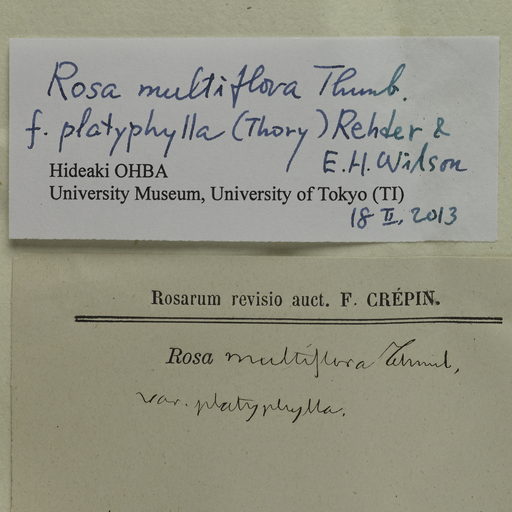 Rosa multiflora Thunb.
f. platyphylla (Thory) Rehder &
E.H. Wilson
Hideaki OHBA
University Museum, University of Tokyo (TI)
18 II, 2013
Rosarum revisio auct. F. CRÉPIN.
Rosa multiflora Thunb,
var. platyphylla.